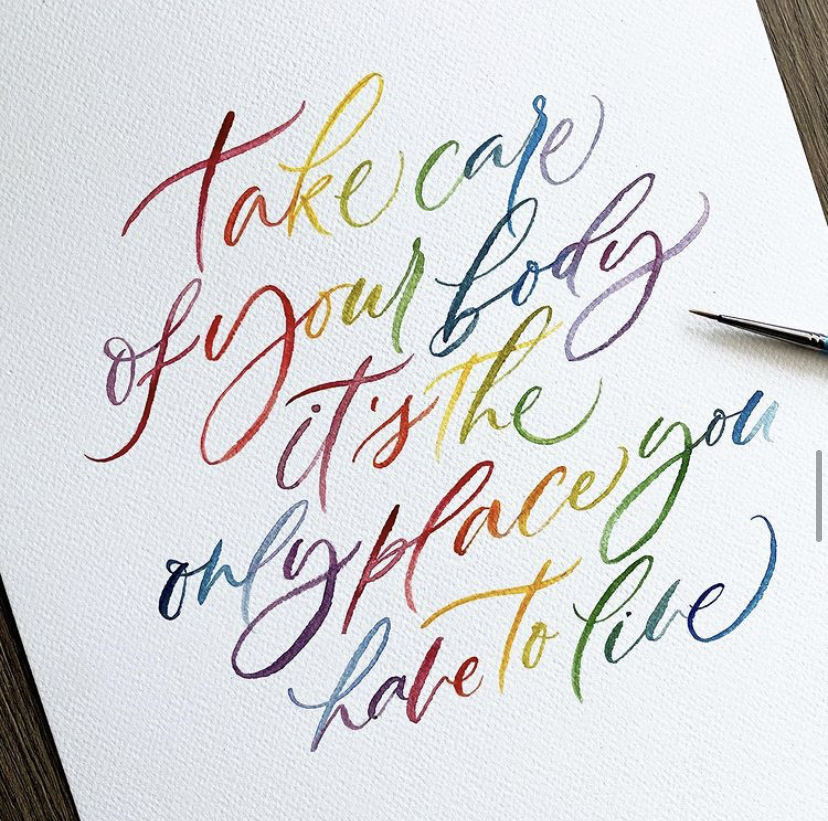 take care
of your body
it's the
only place you
have to live